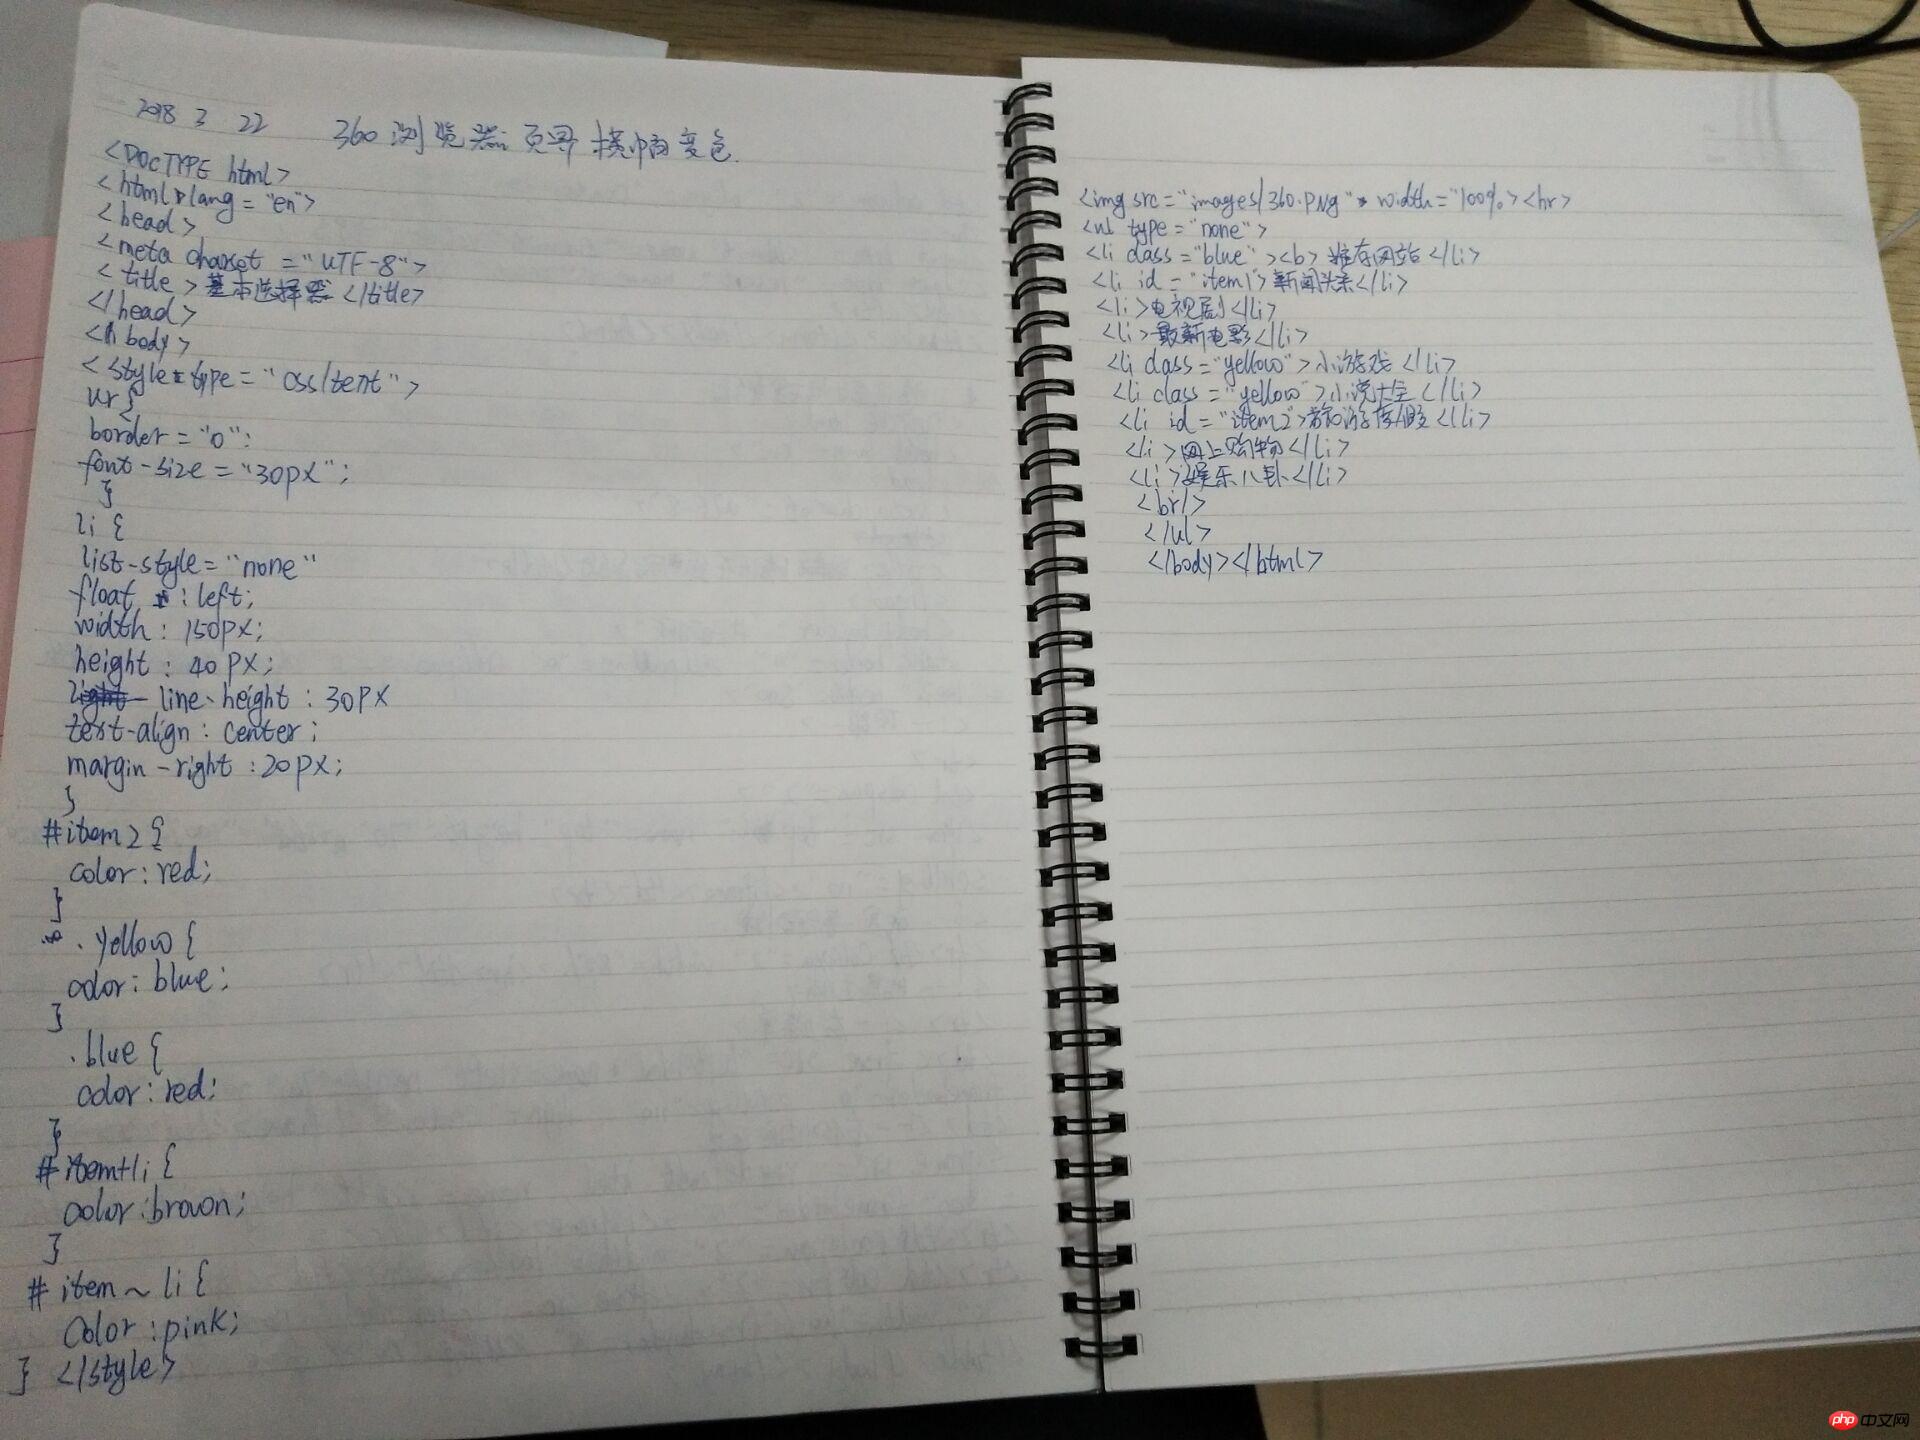 2018 3 22 360浏览器页界横幅变色.
<DOCTYPE html>
<html lang="en">
<head>
<meta charset="UTF-8">
<title>基本选择器</title>
</head>
<body>
<style type="css/text">
ur{
border="0":
font-size="30px";
}
li {
list-style="none"
float : left;
width: 150px;
height: 40px;
line-height: 30px
text-align: center;
margin-right:20px;
}
#item2{
color:red;
}
.yellow{
color: blue;
}
.blue{
color:red;
}
#item+li{
color:brown;
}
#item~li{
color:pink;
} </style>
<img src="images/360.PNg" width="100%><hr>
<ul type="none">
<li class="blue"><b>推存网站</li>
<li id="item1>新闻头条</li>
<li>电视剧</li>
<li>最新电影</li>
<li class="yellow">小游戏</li>
<li class="yellow">小说大全</li>
<li id="item2>旅游度假</li>
<li>网上购物</li>
<li>娱乐八卦</li>
<br/>
</ul>
</body></html>
php 中文网